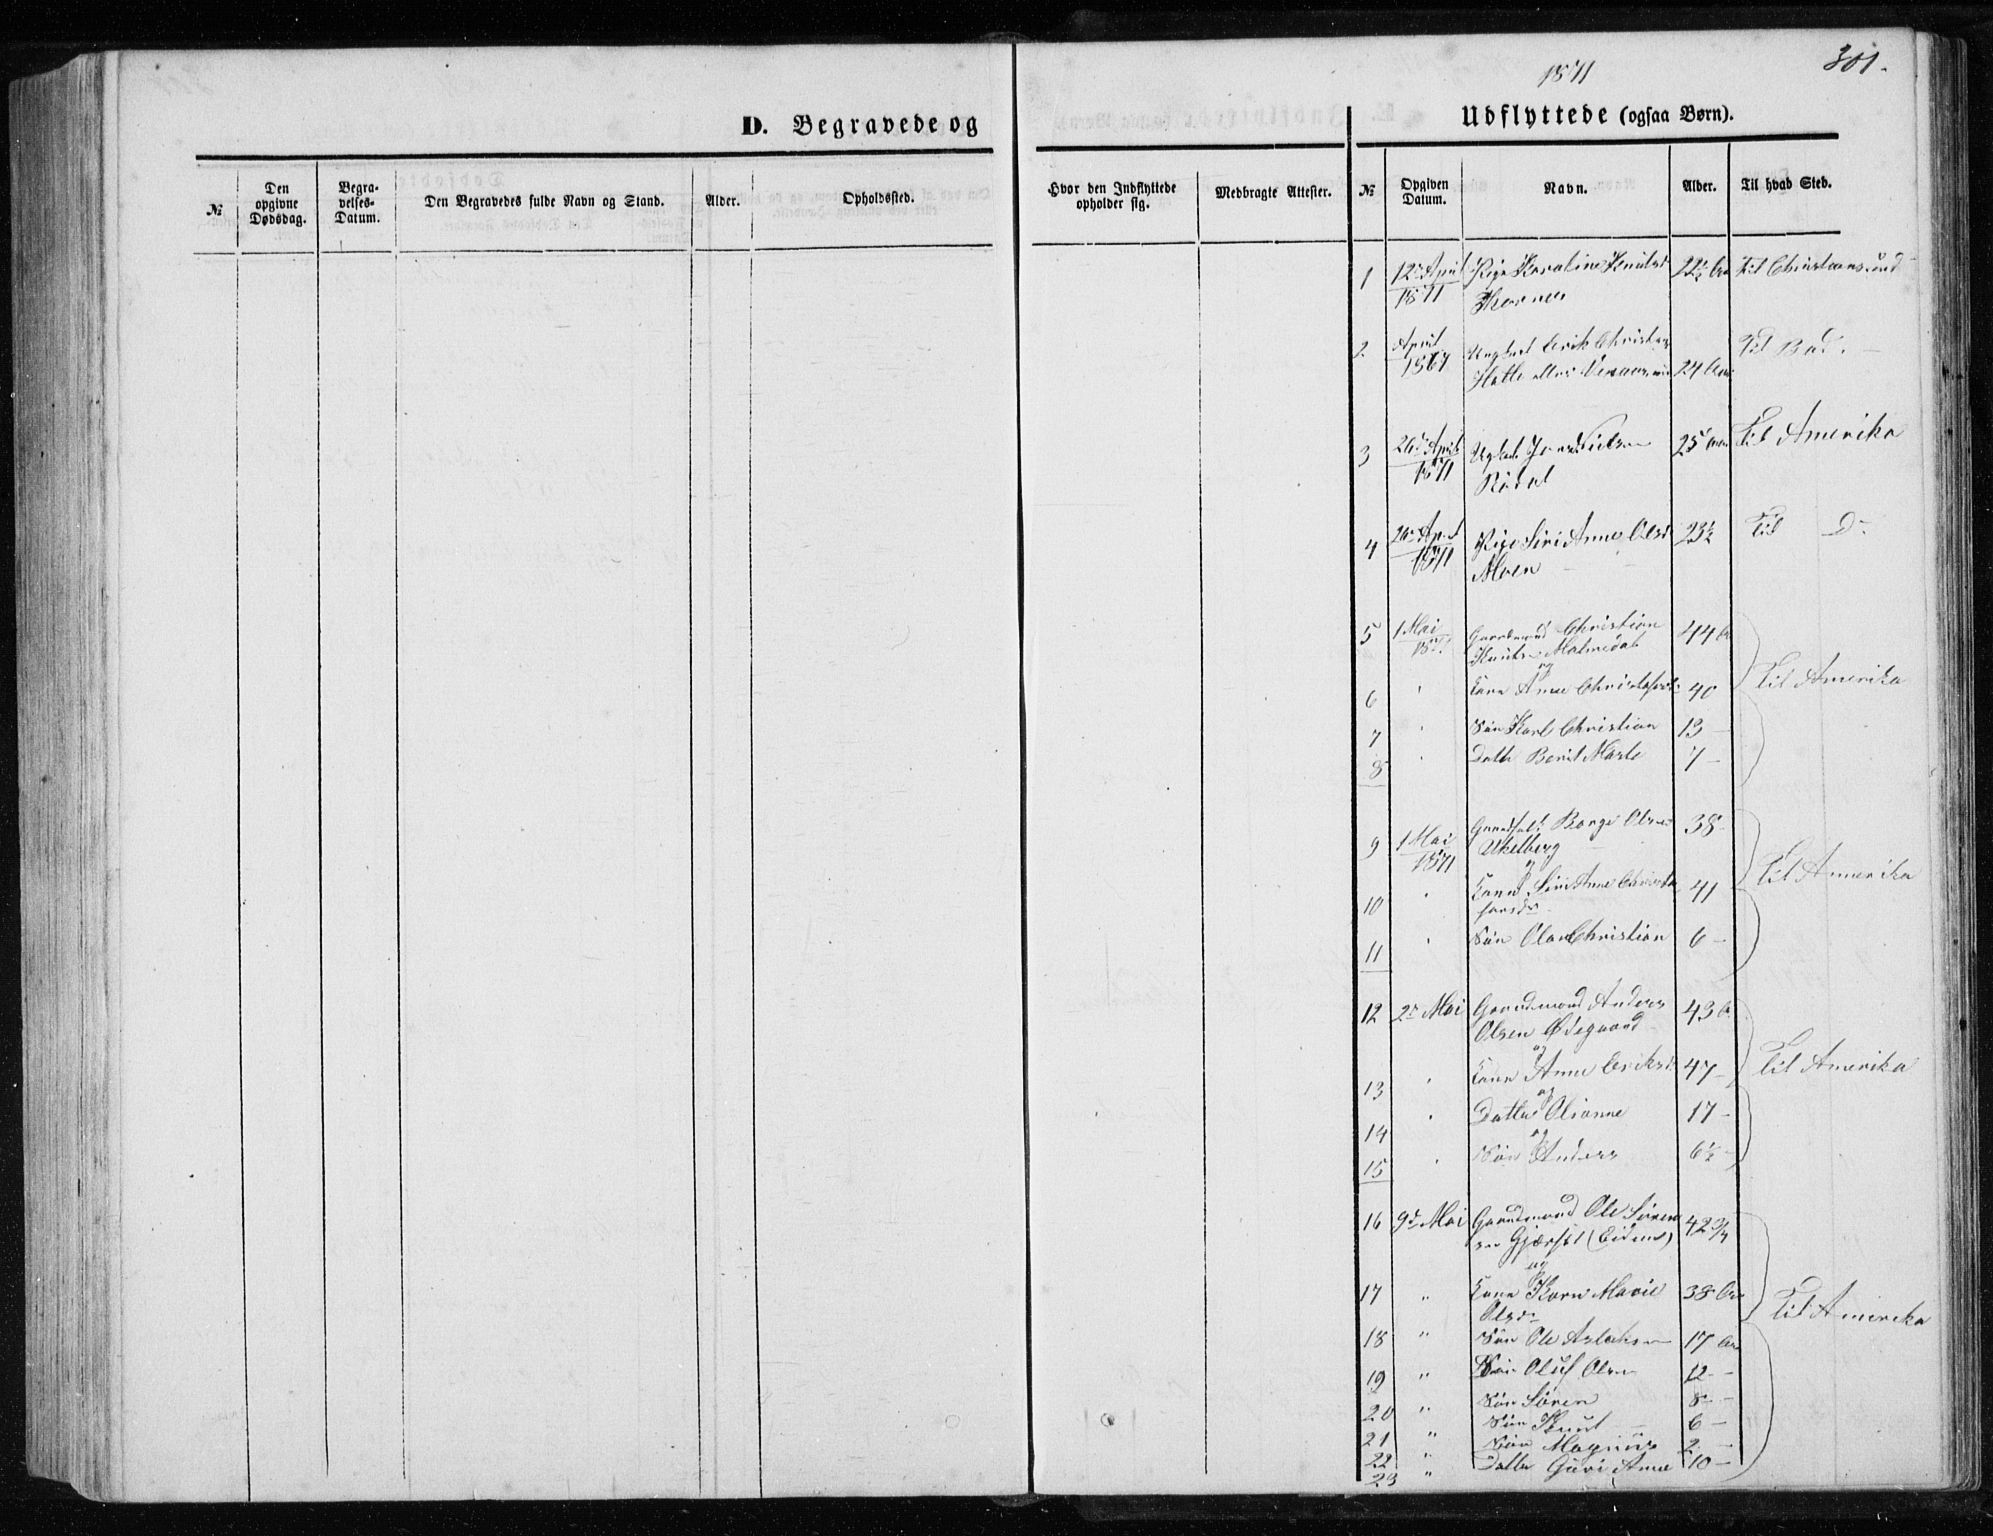 301.
1871
D. Begravede og
Udflyttede (ogsaa Børn).
№
Den opgivne Dødsdag.
Begra-velses-Datum.
Den Begravedes fulde Navn og Stand.
Alder.
Opholdssted.
Hvor den Indflyttede opholder sig.
Medbragte Attester.
№
Opgiven Datum.
Navn.
Alder.
Til hvad Sted.
1 12te April 1871 Pige Karoline Knutsd 22½ Til Christiansund
2 April 1867 Ungkarl Erik 24 Til Bud.
3 26de April 1871 25 Til Amerika
4 26de April 1871 Pige Siri Anne Olsd 23½ Til Do
Moen
5 1 Mai 1871 Gaardmand Christian 44
Knutsen Malmedal
og
6 " Kone Anne 40 Til Amerika
7 " Søn Karl Christian 13 –
8 " Datter Berit Marte 7 –
9 1 Mai 1871 Borge Olsen 38
og
10 " Kone Siri Anne Christo 41 Til Amerika
forsdr
11 " Søn Ola Christian 6 –
12 2de Mai Gaardmand Anders 43
Olsen Ødegaard
og
13 " Kone Anne Eriksd 47 – Til Amerika
og
14 " Datter Olianne 17 –
og
15 " Søn Anders 6½ –
16 9de Mai Gaardmand Ole Søren 42¾
sen Gjerset (Eidem)
og
17 " Kone Karn Marie 38 Til Amerika
Olsdr
18 " Søn Ole Aslaksen 17
19 " Søn Oluf Olsen 12 –
20 " Søn Søren 8 –
21 " Søn Knut 6 –
22 " Søn Magnus 2 –
23 " Datter Guri Anne 10 –